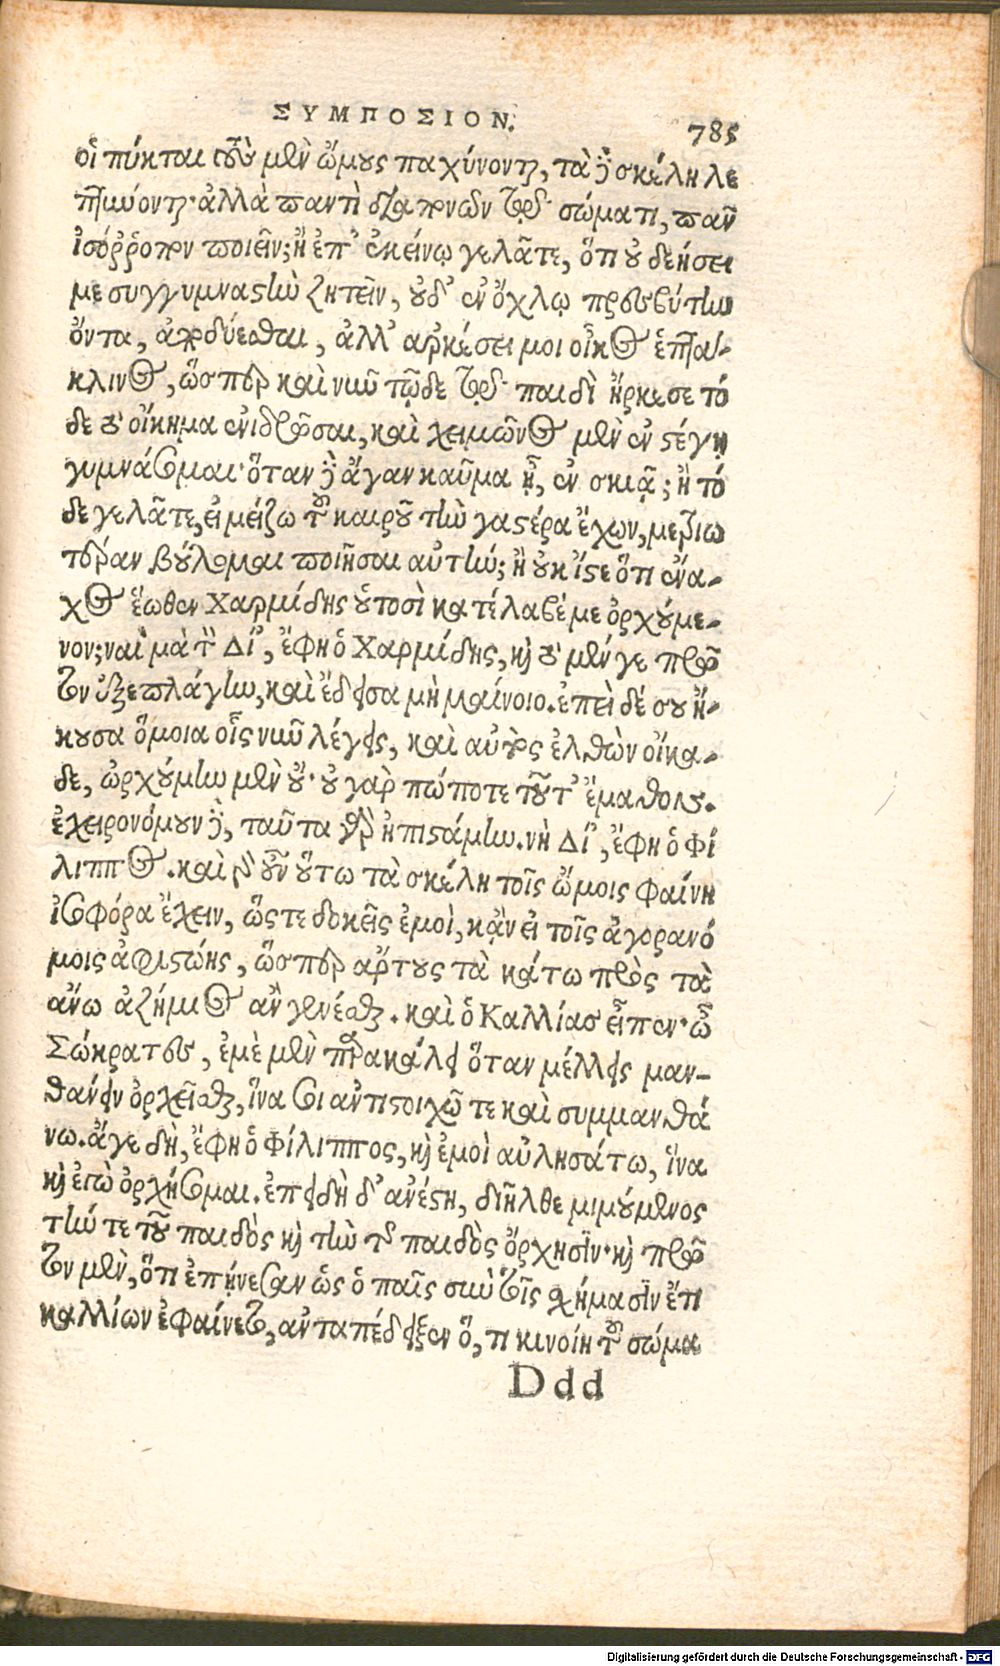 ΣΥΜΠΟΣΙΟΝ. 785
οἱ πύκται τοὺς μὲν ὤμους παχύνονται, τὰ δὲ σκέλη λε
πτύνονται· ἀλλὰ παντὶ διαπονῶν τῷ σώματι, πᾶν
ἰσόῤῥοπον ποιεῖν; ἢ ἐπ' ἐκείνῳ γελᾶτε, ὅτι οὐ δεήσει
με συγγυμναστὴν ζητεῖν, οὐδ' ἐν ὄχλῳ πρεσβύτην
ὄντα, ἀποδύεσθαι, ἀλλ' ἀρκέσει μοι οἶκος ἑπτά-
κλινος, ὥσπερ καὶ νῦν τῷδε τῷ παιδὶ ἤρκεσε τό
δε τὸ οἴκημα ἐνιδρῶσαι, καὶ χειμῶνος μὲν ἐν στέγῃ
γυμνάσομαι· ὅταν δὲ ἄγαν καῦμα ᾖ, ἐν σκιᾷ; ἢ τό
δε γελᾶτε, εἰ μείζω τοῦ καιροῦ τὴν γαστέρα ἔχων, μετριω
τέραν βούλομαι ποιῆσαι αὐτήν; ἢ οὐκ ἴστε ὅτι ἔνα-
χος ἕωθεν Χαρμίδης οὑτοσὶ κατέλαβέ με ὀρχούμε-
νον; ναὶ μὰ τὸν Δί', ἔφη ὁ Χαρμίδης, καὶ τὸ μέν γε πρῶ
τον ἐξεπλάγην, καὶ ἔδεισα μὴ μαίνοιο. ἐπεὶ δέ σου ἤ-
κουσα ὅμοια οἷς νῦν λέγεις, καὶ αὐτὸς ἐλθὼν οἴκα-
δε, ὠρχούμην μὲν οὔ· οὐ γὰρ πώποτε τοῦτ' ἔμαθον.
ἐχειρονόμουν δέ, ταῦτα γὰρ ἠπιστάμην. νὴ Δί', ἔφη ὁ Φί
λιππος. καὶ γὰρ οὖν οὕτω τὰ σκέλη τοῖς ὤμοις φαίνῃ
ἰσοφόρα ἔχειν, ὥστε δοκεῖς ἐμοὶ, κἂν εἰ τοῖς ἀγορανό
μοις ἀφιστῴης, ὥσπερ ἄρτους τὰ κάτω πρὸς τὰ
ἄνω ἀζήμιος ἂν γενέσθαι. καὶ ὁ Καλλίας εἶπεν· ὦ
Σώκρατες, ἐμὲ μὲν παρακάλει ὅταν μέλλῃς μαν-
θάνειν ὀρχεῖσθαι, ἵνα σοι ἀντιστοιχῶ τε καὶ συμμανθά
νω. ἄγε δὴ, ἔφη ὁ Φίλιππος, καὶ ἐμοὶ αὐλησάτω, ἵνα
καὶ ἐγὼ ὀρχήσομαι. ἐπειδὴ δ' ἀνέστη, διῆλθε μιμούμενος
τήν τε τοῦ παιδὸς καὶ τὴν τῆς παιδὸς ὄρχησιν· καὶ πρῶ
τον μὲν, ὅτι ἐπῄνεσαν ὡς ὁ παῖς σὺν τοῖς σχήμασιν ἔτι
καλλίων ἐφαίνετο, ἀνταπέδειξεν ὅ, τι κινοίη τοῦ σώμα
Ddd
Digitalisierung gefördert durch die Deutsche Forschungsgemeinschaft - DFG